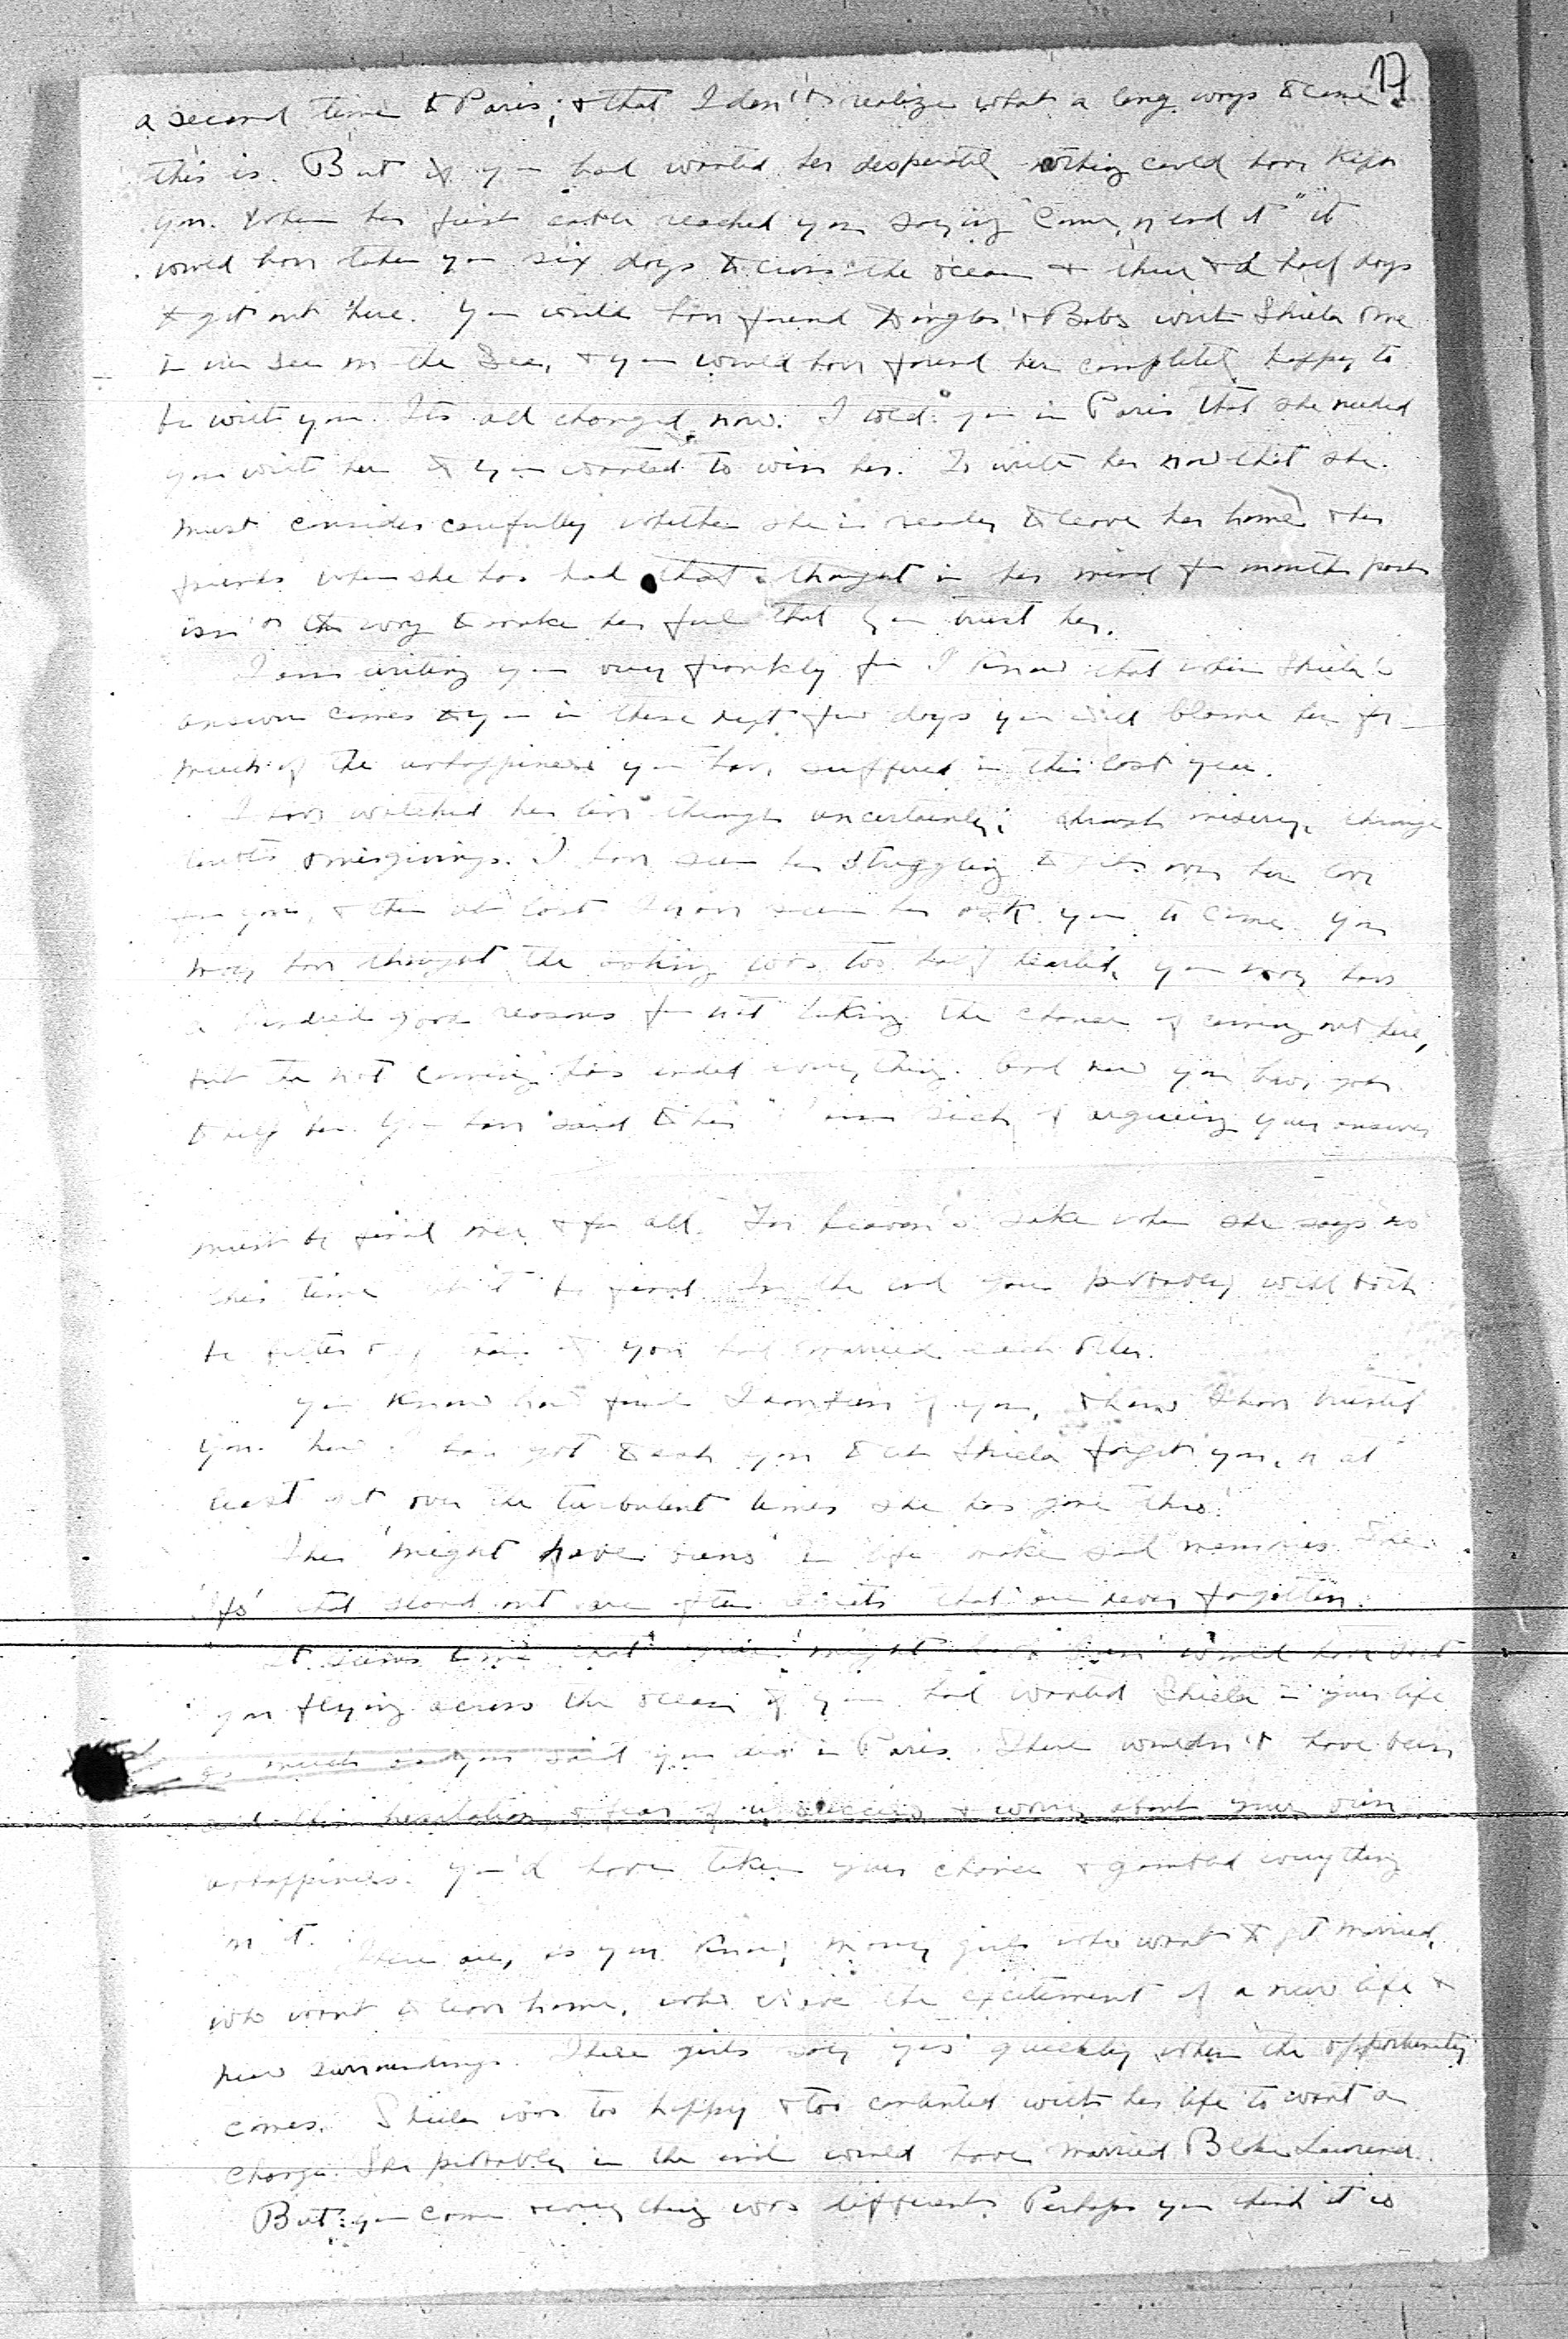 17
a second time to Paris; & that I don't realize what a long ways to come
this is. But if you had wanted her desperately nothing could have kept
you. When her first cable reached you saying "Come, or end it" it
would have taken you six days to cross the ocean & three & a half days
to get out here. You would have found Douglas & Babs with Shiela
& you would have found her completely happy to
be with you. Its all changed now. I told you in Paris that she needed
you with her if you wanted to win her. To write her now that she
must consider carefully whether she is ready to leave her home & her
friends when she has had that thought in her mind for months past
isn't the way to make her feel that you trust her.
I am writing you very frankly for I know that when Shiela's
answer comes to you in these next few days you will blame her for
much of the unhappiness you have suffered in this last year.
I have watched her live through uncertainty, through misery, through
doubts & misgivings. I have seen her struggling to get over her love
for you, & then at last I have seen her ask you to come. You
may have thought the asking was too half hearted, you may have
a hundred good reasons for not taking the chance of coming out here,
but the not coming has ended everything. And now you have got
to help her. You have said to her "I am sick of arguing your answer
must be final once & for all." For heaven's sake when she says no
this time let it be final. In the end you probably will both
be better off than if you had married each other.
You know how fond I have been of you, & how I have trusted
you. Now I have got to ask you to let Shiela forget you, or at
least get over the turbulent times she has gone thro'.
The 'might have beens' in life make sad memories. The
'ifs' that stand out are often regrets that are never forgotten.
It seems to me that 'might have been' would have sent
you flying across the ocean if you had wanted Shiela in your life
as much as you said you did in Paris. There wouldn't have been
all this hesitation & fear of & worry about your own
unhappiness. You'd have taken your chance & gambled everything
on it.
There are, as you know, many girls who want to get married,
who want to leave home, who crave the excitement of a new life &
new surroundings. These girls say 'yes' quickly when the opportunity
comes. Shiela was too happy & too contented with her life to want a
change. She probably in the end would have married Blake Lawrence.
But you came & everything was different. Perhaps you think it is